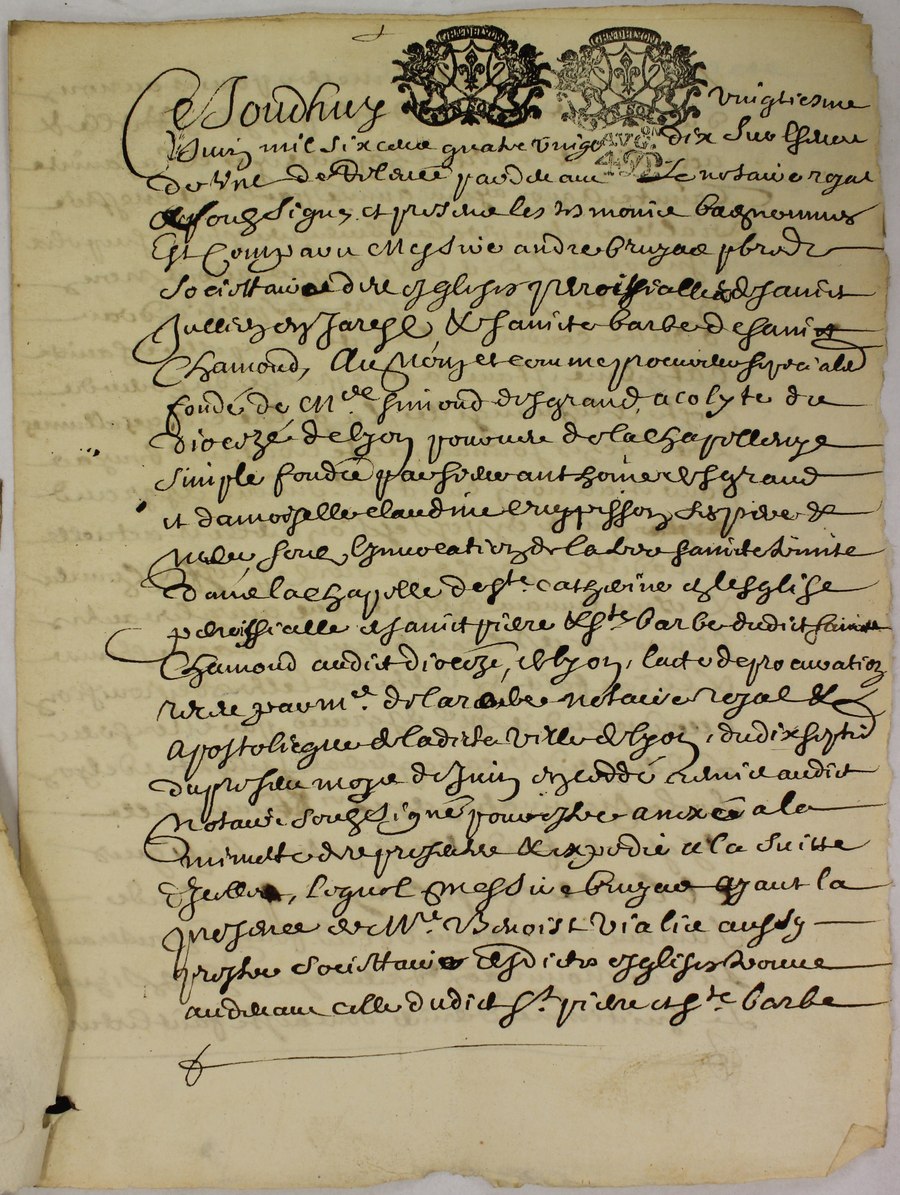 GNAL DE LYON GNAL DE LYON
Ce Jourdhuy vingtiesme
Juin mil six cens quatre vingt dix sur lheure
de une de Relevée pardevant Le notaire royal
soubsigné et presens les tesmoins bas nommés
Est Comparu Messire andre bruyas pbre
Societtaire des esglises parroissialles de sainct
Jullien en Jarest & saincte barbe de sainct
Chamond, Au Nom et comme procureur special
fondé de Mre simond desgrand, acolyte du
diocezé de lyon pourveu de la chappellenye
simple fondée par sieur anthoine desgrand
et damoiselle claudine ses pere &
mere soubs linvocation de la tres saincte trinite
dans la chappelle de ste. catherine en lesglise
parroissialle de sainct pierre & ste barbe dudict sainct
Chamond audict diocezé, de lyon, lacte de procuration
receue par me. notaire royal &
apostolicque de ladicte ville de lyon, du dix sept
du presen moys de Juin remis audict
Notaire soubsigné pour estre annexée a la
minutte des presentes & expedié a la suitte
dicelles, lequel Messire bruyas ayant la
presence de Mre. Benoist vialis aussy
prestre societtaire desdictes esglises trouvé
audevant celle dudict st. pierre et ste barbe